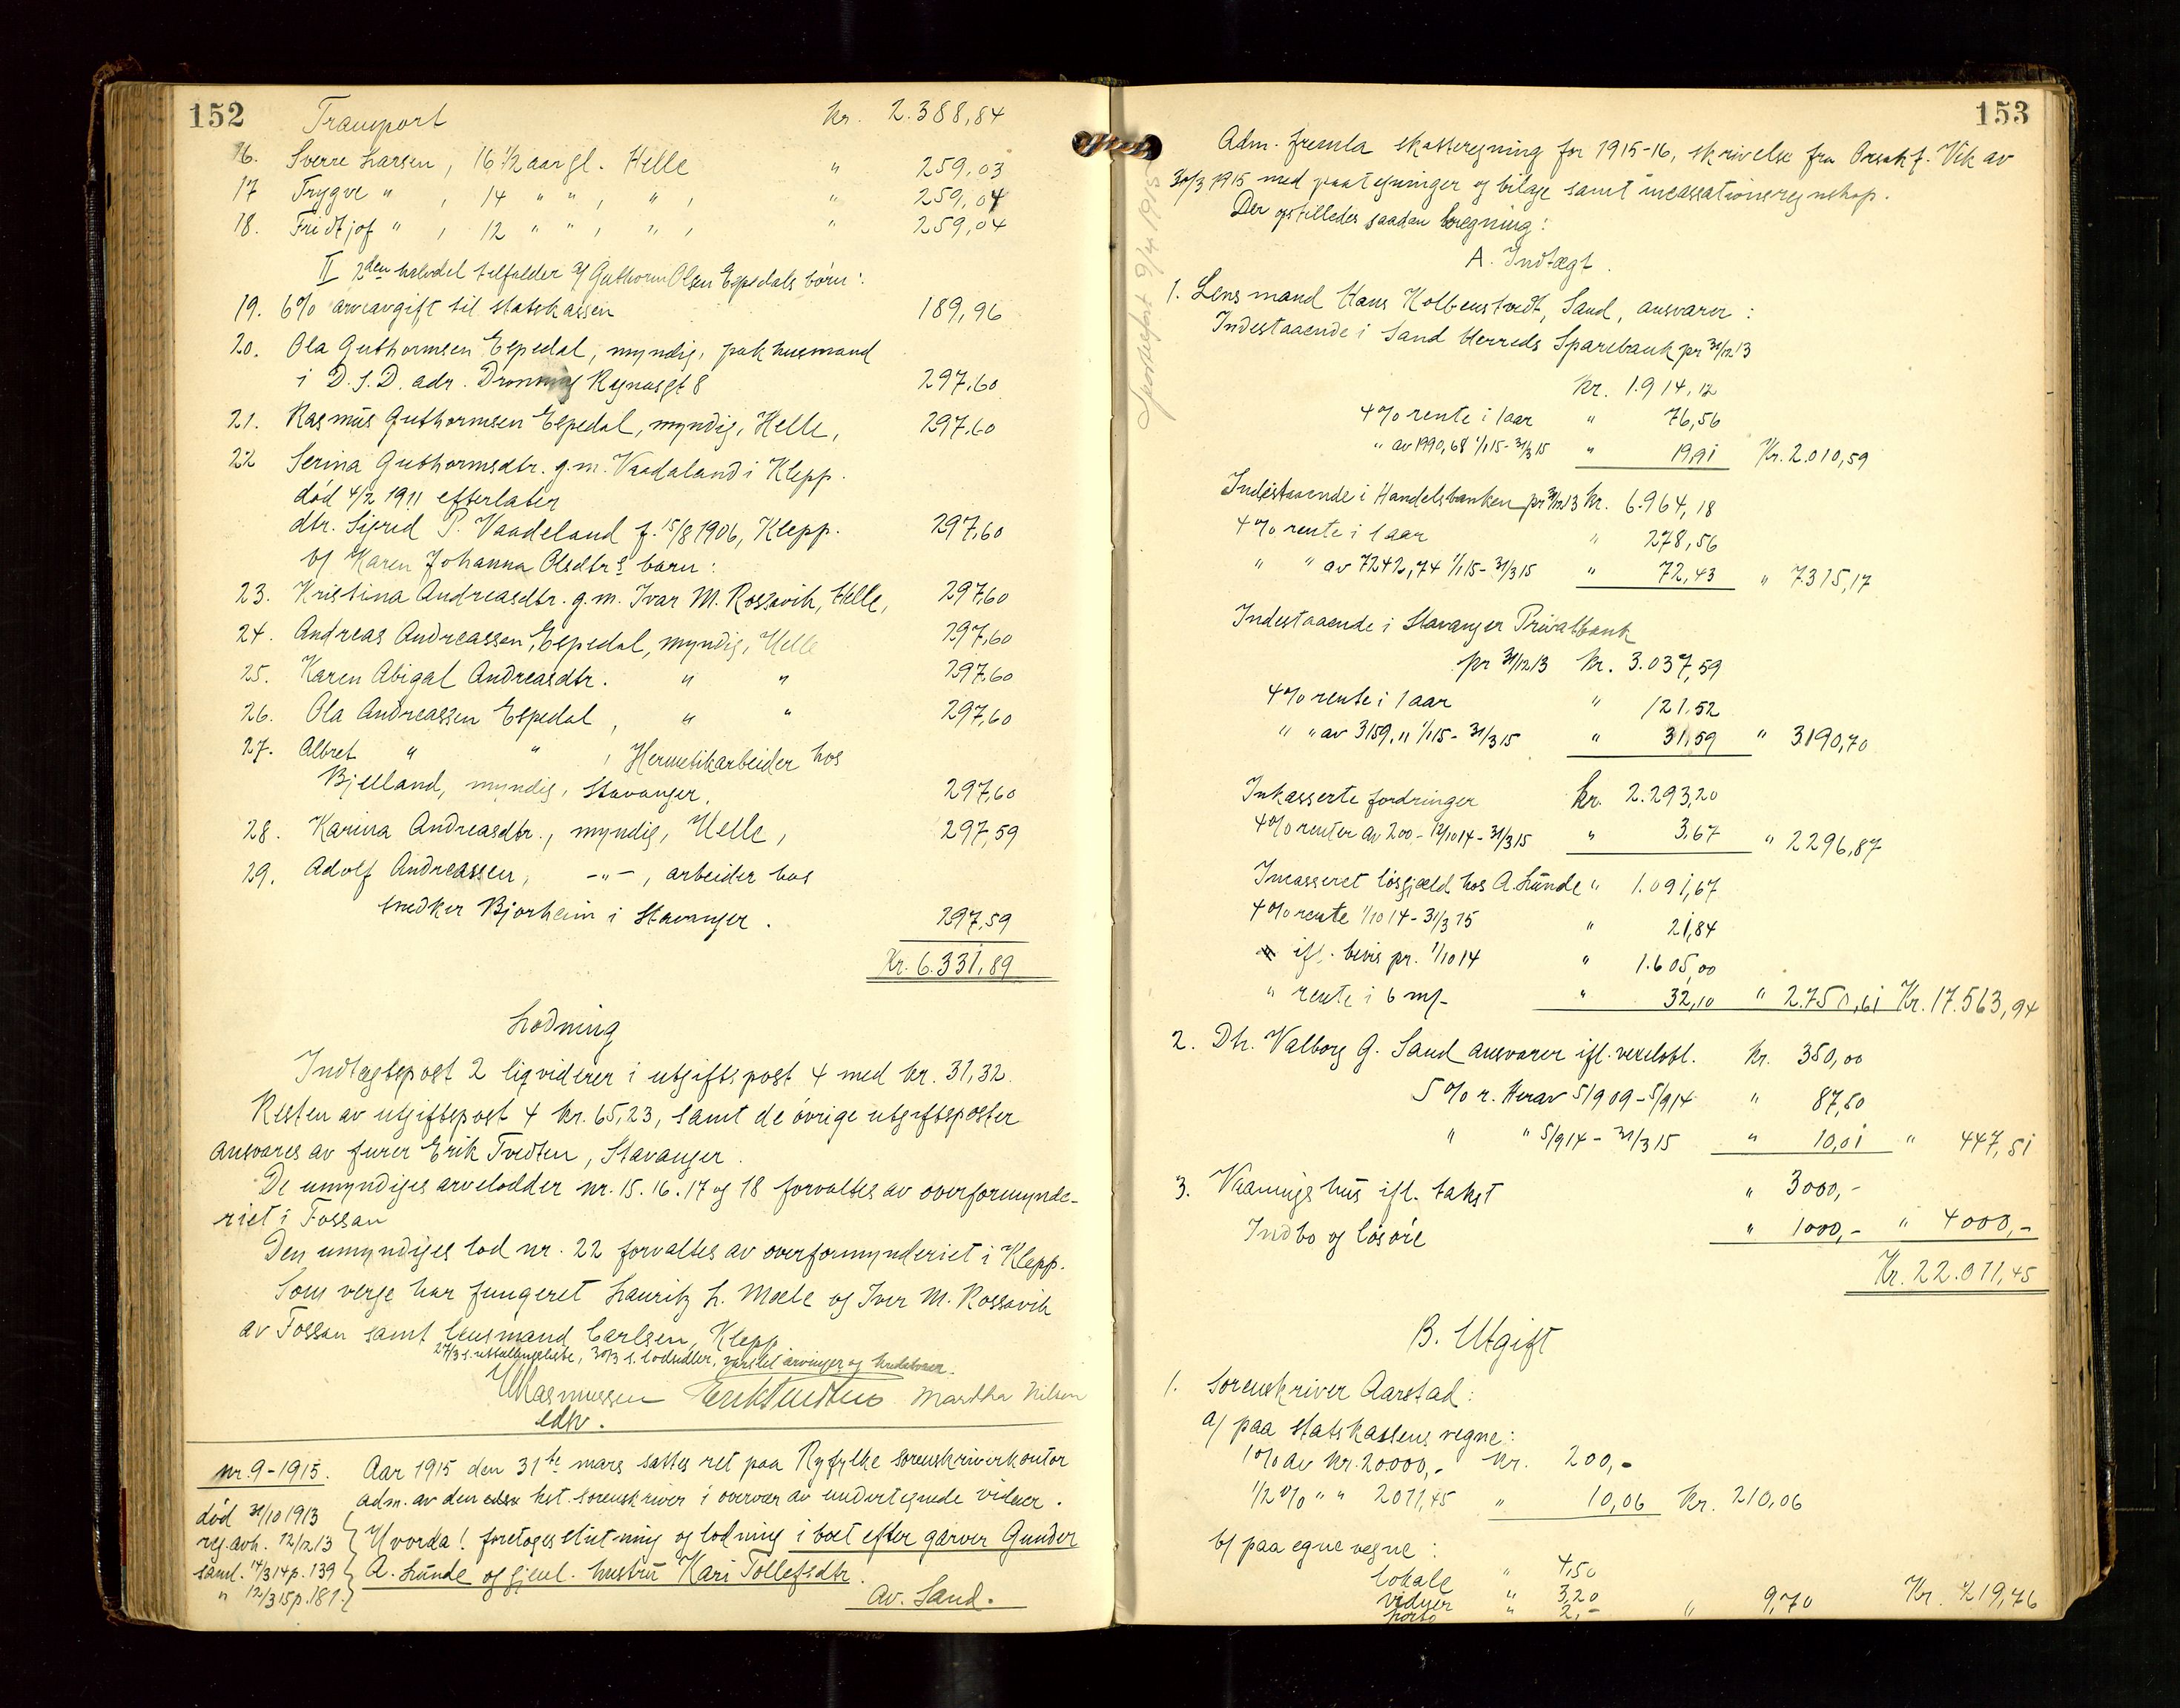 152
Transport kr. 2.388,84
16. Sverre Larsen, 16 1/2 aar gl. Helle " 259,03
17 Trygve " , 14 " " , " , " 259,04
18. Fridtjof " , 12 " " , " , " 259,04
II 2den halvdel tilfalder a/ Guthorm Olsen Espedals børn:
19. 6% arveavgift til statskassen 189,96
20. Ola Guthormsen Espedal, myndig, pakhusmand
i D.S.D. adr. Dronning Ragnasgt 8 297,60
21. Rasmus Guthormsen Espedal, myndig, Helle, 297,60
22 Serina Guthormsdtr. g.m. Vaadaland i Klepp.
død 4/2 1911 efterlater
dtr. Sigrid P. Vaadeland f. 15/8 1906, Klepp. 297,60
b/ Karen Johanna Olsdtrs barn:
23. Kristina Andreasdtr. g.m. Ivar M. Rossavik, Helle, 297,60
24. Andreas Andreassen Espedal, myndig, Helle 297,60
25. Karen Abigal Andreasdtr. " " 297,60
26. Ola Andreassen Espedal, " " 297,60
27. Albret " " , Hermetikarbeider hos
Bjelland, myndig, Stavanger. 297,60
28. Karina Andreasdtr., myndig, Helle, 297,59
29. Adolf Andreassen, -"-, arbeider hos
snedker Bjorheim i Stavanger. 297,59
Kr. 6.331,89
Lodning
Indtægtspost 2 liqviderer i utgiftspost 4 med kr. 31,32.
Resten av utgiftspost 4 kr. 65,23, samt de øvrige utgiftsposter
ansvares av furer Erik Tvedten, Stavanger.
De umyndiges arvelodder nr. 15. 16. 17 og 18 forvaltes av overformynde-
riet i Fossan
Den umyndiges lod nr. 22 forvaltes av overformynderiet i Klepp.
Som verge har fungeret Lauritz L. Mæle og Iver M. Rossavik
av Fossan samt lensmand Carlsen, Klepp
27/3 s. utstallingsliste, 30/3 s. lodsedler, varslet arvinger og kreditorer.
Rasmussen Erik Tvedten Martha Nilsen
edsv.
nr. 9-1915. Aar 1915 den 31te mars sattes ret paa Ryfylke sorenskriverkontor
adm. av den edsv kst. sorenskriver i overvær av undertegnede vidner.
død 31/10 1913
reg.avh. 12/12 13 Hvorda! foretoges slutning og lodning i boet efter garver Gunder
saml. 14/3 14 p. 139 A. Lunde og gjenl. hustru Kari Tollefsdtr.
" 12/3 15 p. 181 Av. Sand.
153
Sportelført 9/4 1915
Adm. fremla skatteregning for 1915-16, skrivelse fra Orsakf. Vik av
30/3 1915 med paategninger og bilage samt incassationsregnskap.
Der opstilledes saadan beregning:
A. Indtægt.
1. Lensmand Hans Kolbenstvedt, Sand, ansvarer:
Indestaaende i Sand Herreds Sparebank pr 31/12 13
kr. 1.914,12
4% rente i 1 aar " 76,56
" av 1990,68 1/1 15 - 31/3 15 " 19,91 Kr. 2.010,59
Indestaaende i Handelsbanken pr 31/12 13 kr. 6.964,18
4% rente i 1 aar " 278,56
" " av 7242,74 1/1 15 - 31/3 15 " 72,43 " 7315,17
Indestaaende i Stavanger Privatbank
pr 31/12 13 kr. 3.037,59
4% rente i 1 aar " 121,52
" " av 3159,11 1/1 15 - 31/3 15 " 31,59 " 3190,70
Inkasserte fordringer kr. 2.293,20
4% renter av 200,- 13/10 14 - 31/3 15 " 3,67 " 2296,87
Incasseret løsgjæld hos A. Lunde " 1.091,67
4% rente 1/10 14 - 31/3 15 " 21,84
ifl. bevis pr. 1/10 14 " 1.605,00
" rente i 6 md " 32,10 " 2.750,61 Kr. 17.563,94
2. Dtr. Valborg G. Sand ansvarer ifl. vexelobl. kr. 350,00
5% r. Herav 5/9 09 - 5/9 14 " 87,50
" " 5/9 14 - 31/3 15 " 10,01 " 447,51
3. Vaaningshus ifl. takst " 3000,-
Indbo og løsøre " 1000,- " 4000,-
Kr. 22.011,45
B. Utgift
1. Sorenskriver Aarstad:
a/ paa statskassens vegne:
1% av kr. 20000,- kr. 200,-
1/2% " " 2011,45 " 10,06 kr. 210,06
b/ paa egne vegne:
lokale " 4,50
vidner " 3,20
porto " 2,- " 9,70 Kr. 219,76